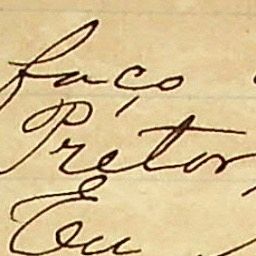 faço
Prétor,
Eu